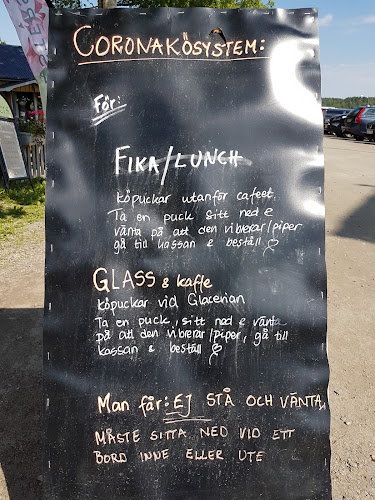 CORONAKÖSYSTEM:
För:
FIKA/LUNCH
Köpuckar utanför cafeet.
Ta en puck sitt ned e
vänta på att den vibrerar/piper
gå till kassan e beställ
GLASS & kaffe
Köpuckar vid Glacerian
Ta en puck, sitt ned e vänta
på att den vibrerar/piper, gå till
kassan & beställ
Man får: EJ STÅ OCH VÄNTA,
MÅSTE SITTA NED VID ETT
BORD INNE ELLER UTE